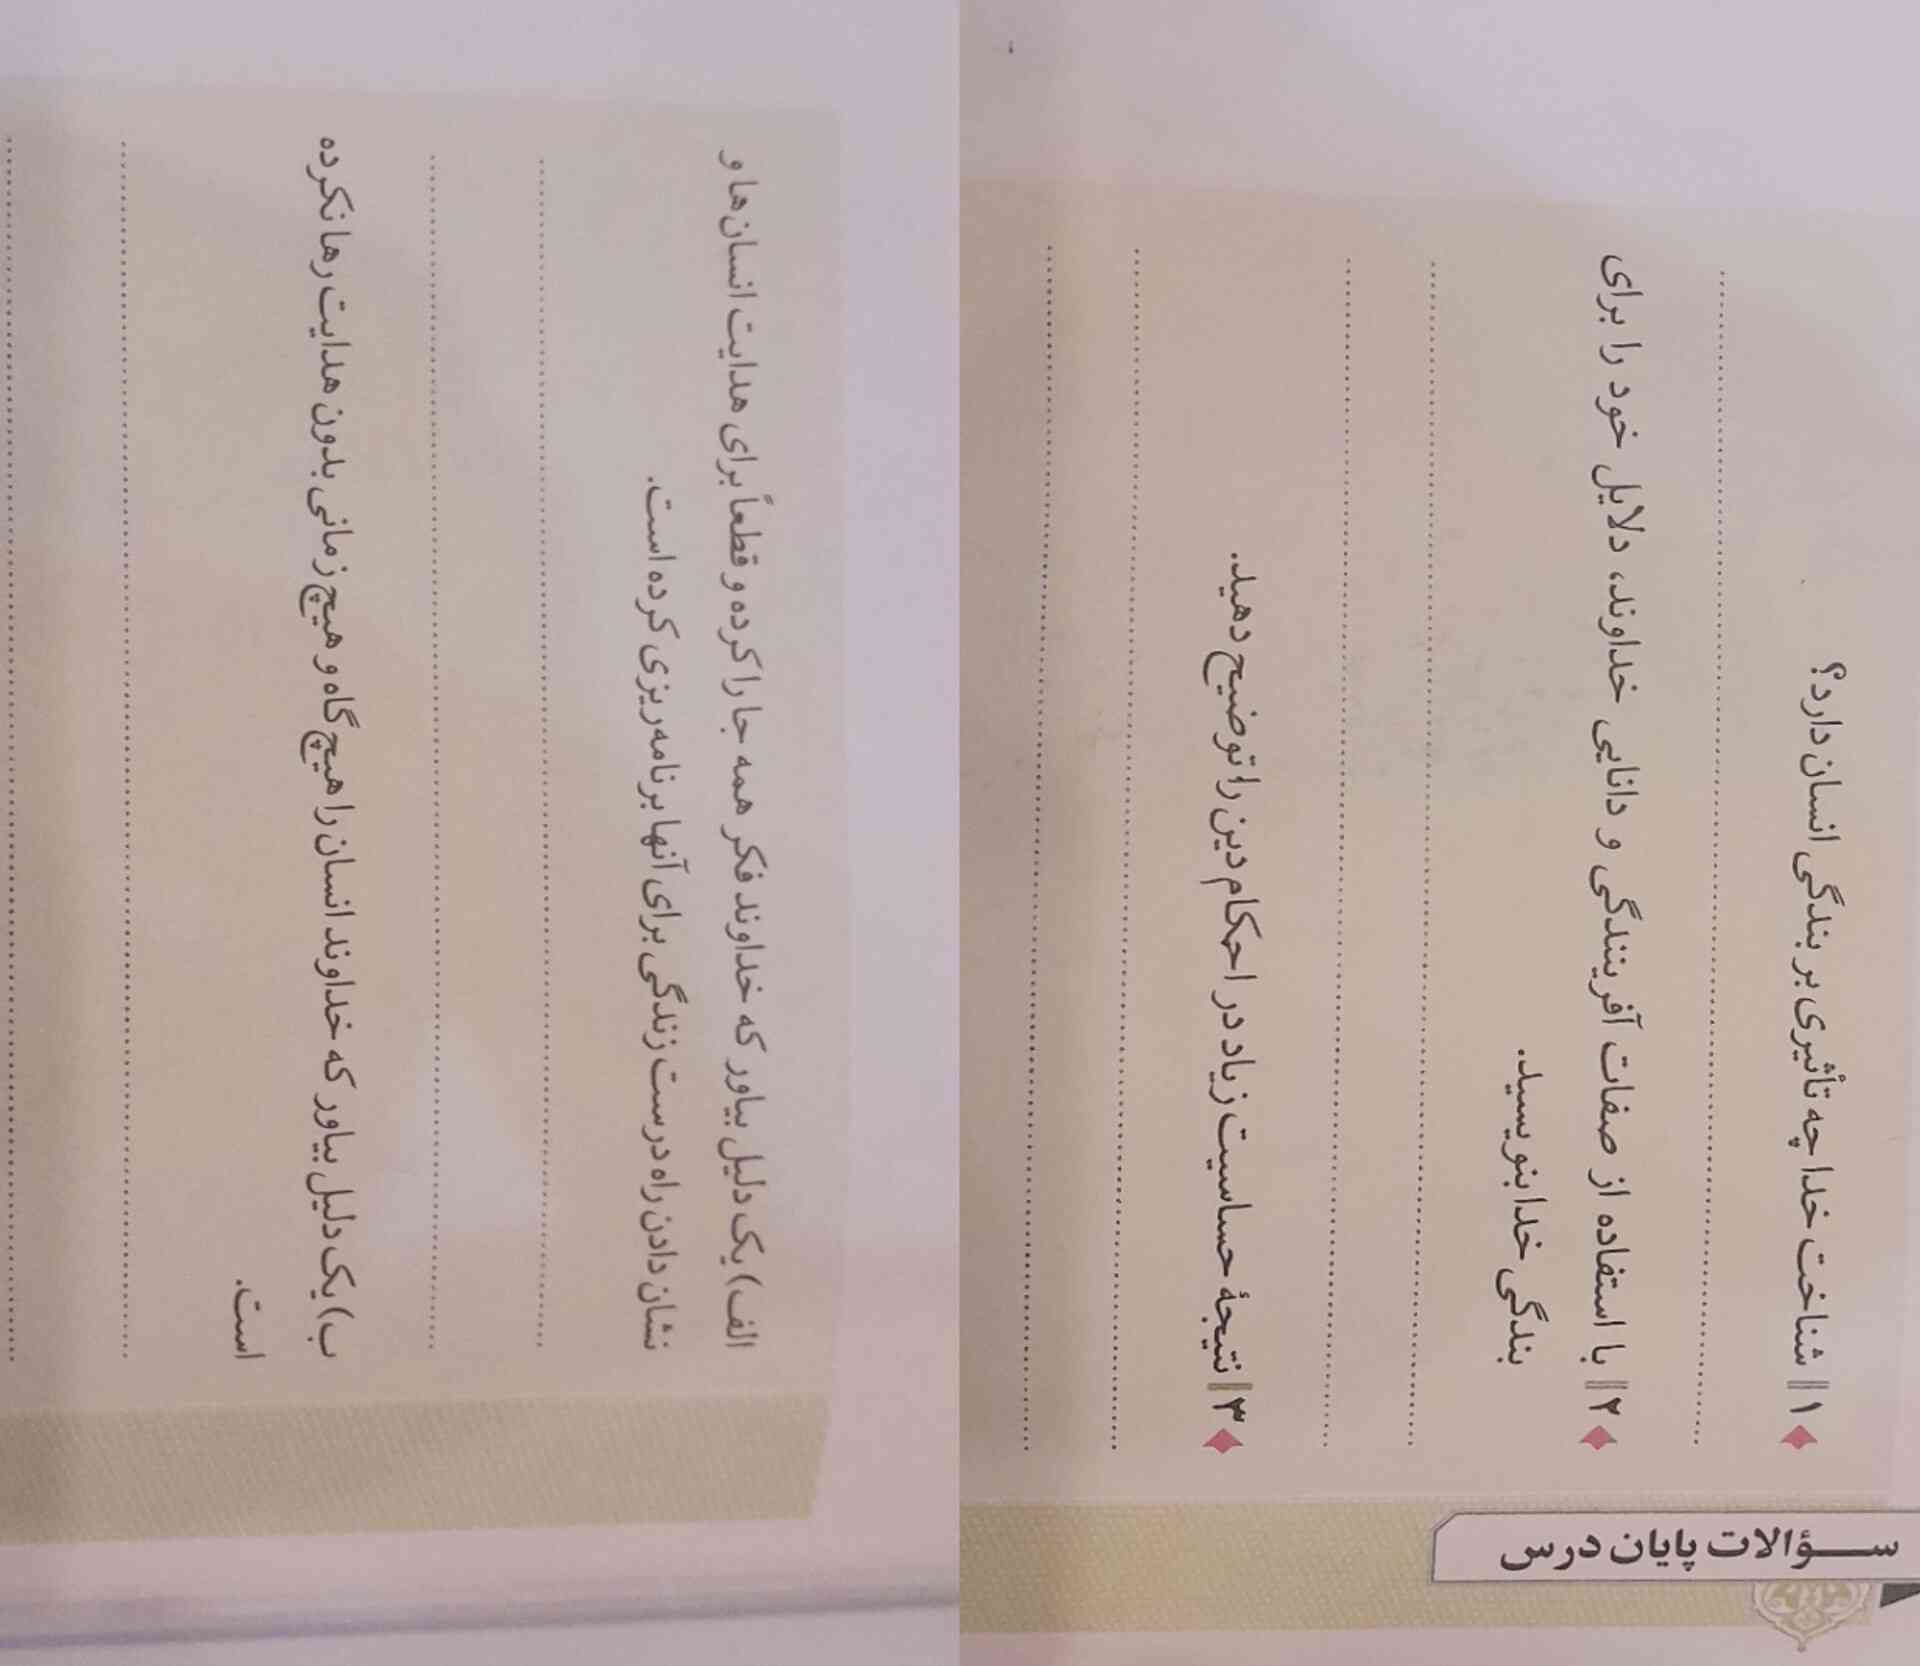 سؤالات پایان درس
۱ شناخت خدا چه تأثیری بر بندگی انسان دارد؟
۲ با استفاده از صفات آفرینندگی و دانایی خداوند، دلایل خود را برای
بندگی خدا بنویسید.
۳ نتیجۀ حساسیت زیاد در احکام دین را توضیح دهید.
الف) یک دلیل بیاور که خداوند فکر همه جا را کرده و قطعاً برای هدایت انسان‌ها و
نشان دادن راه درست زندگی برای آنها برنامه‌ریزی کرده است.
ب) یک دلیل بیاور که خداوند انسان را هیچ‌گاه و هیچ زمانی بدون هدایت رها نکرده
است.